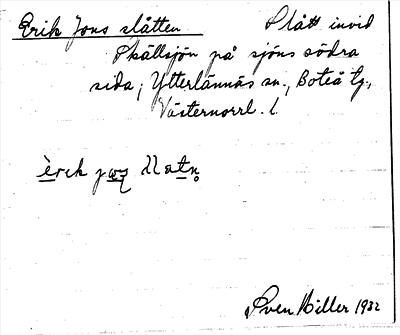 Erik Jons slåtten Slått invid
Skällsjön på sjöns södra
sida, Ytterlännäs sn., Boteå tg.,
Västernorrl. l.
Sven Hiller 1932